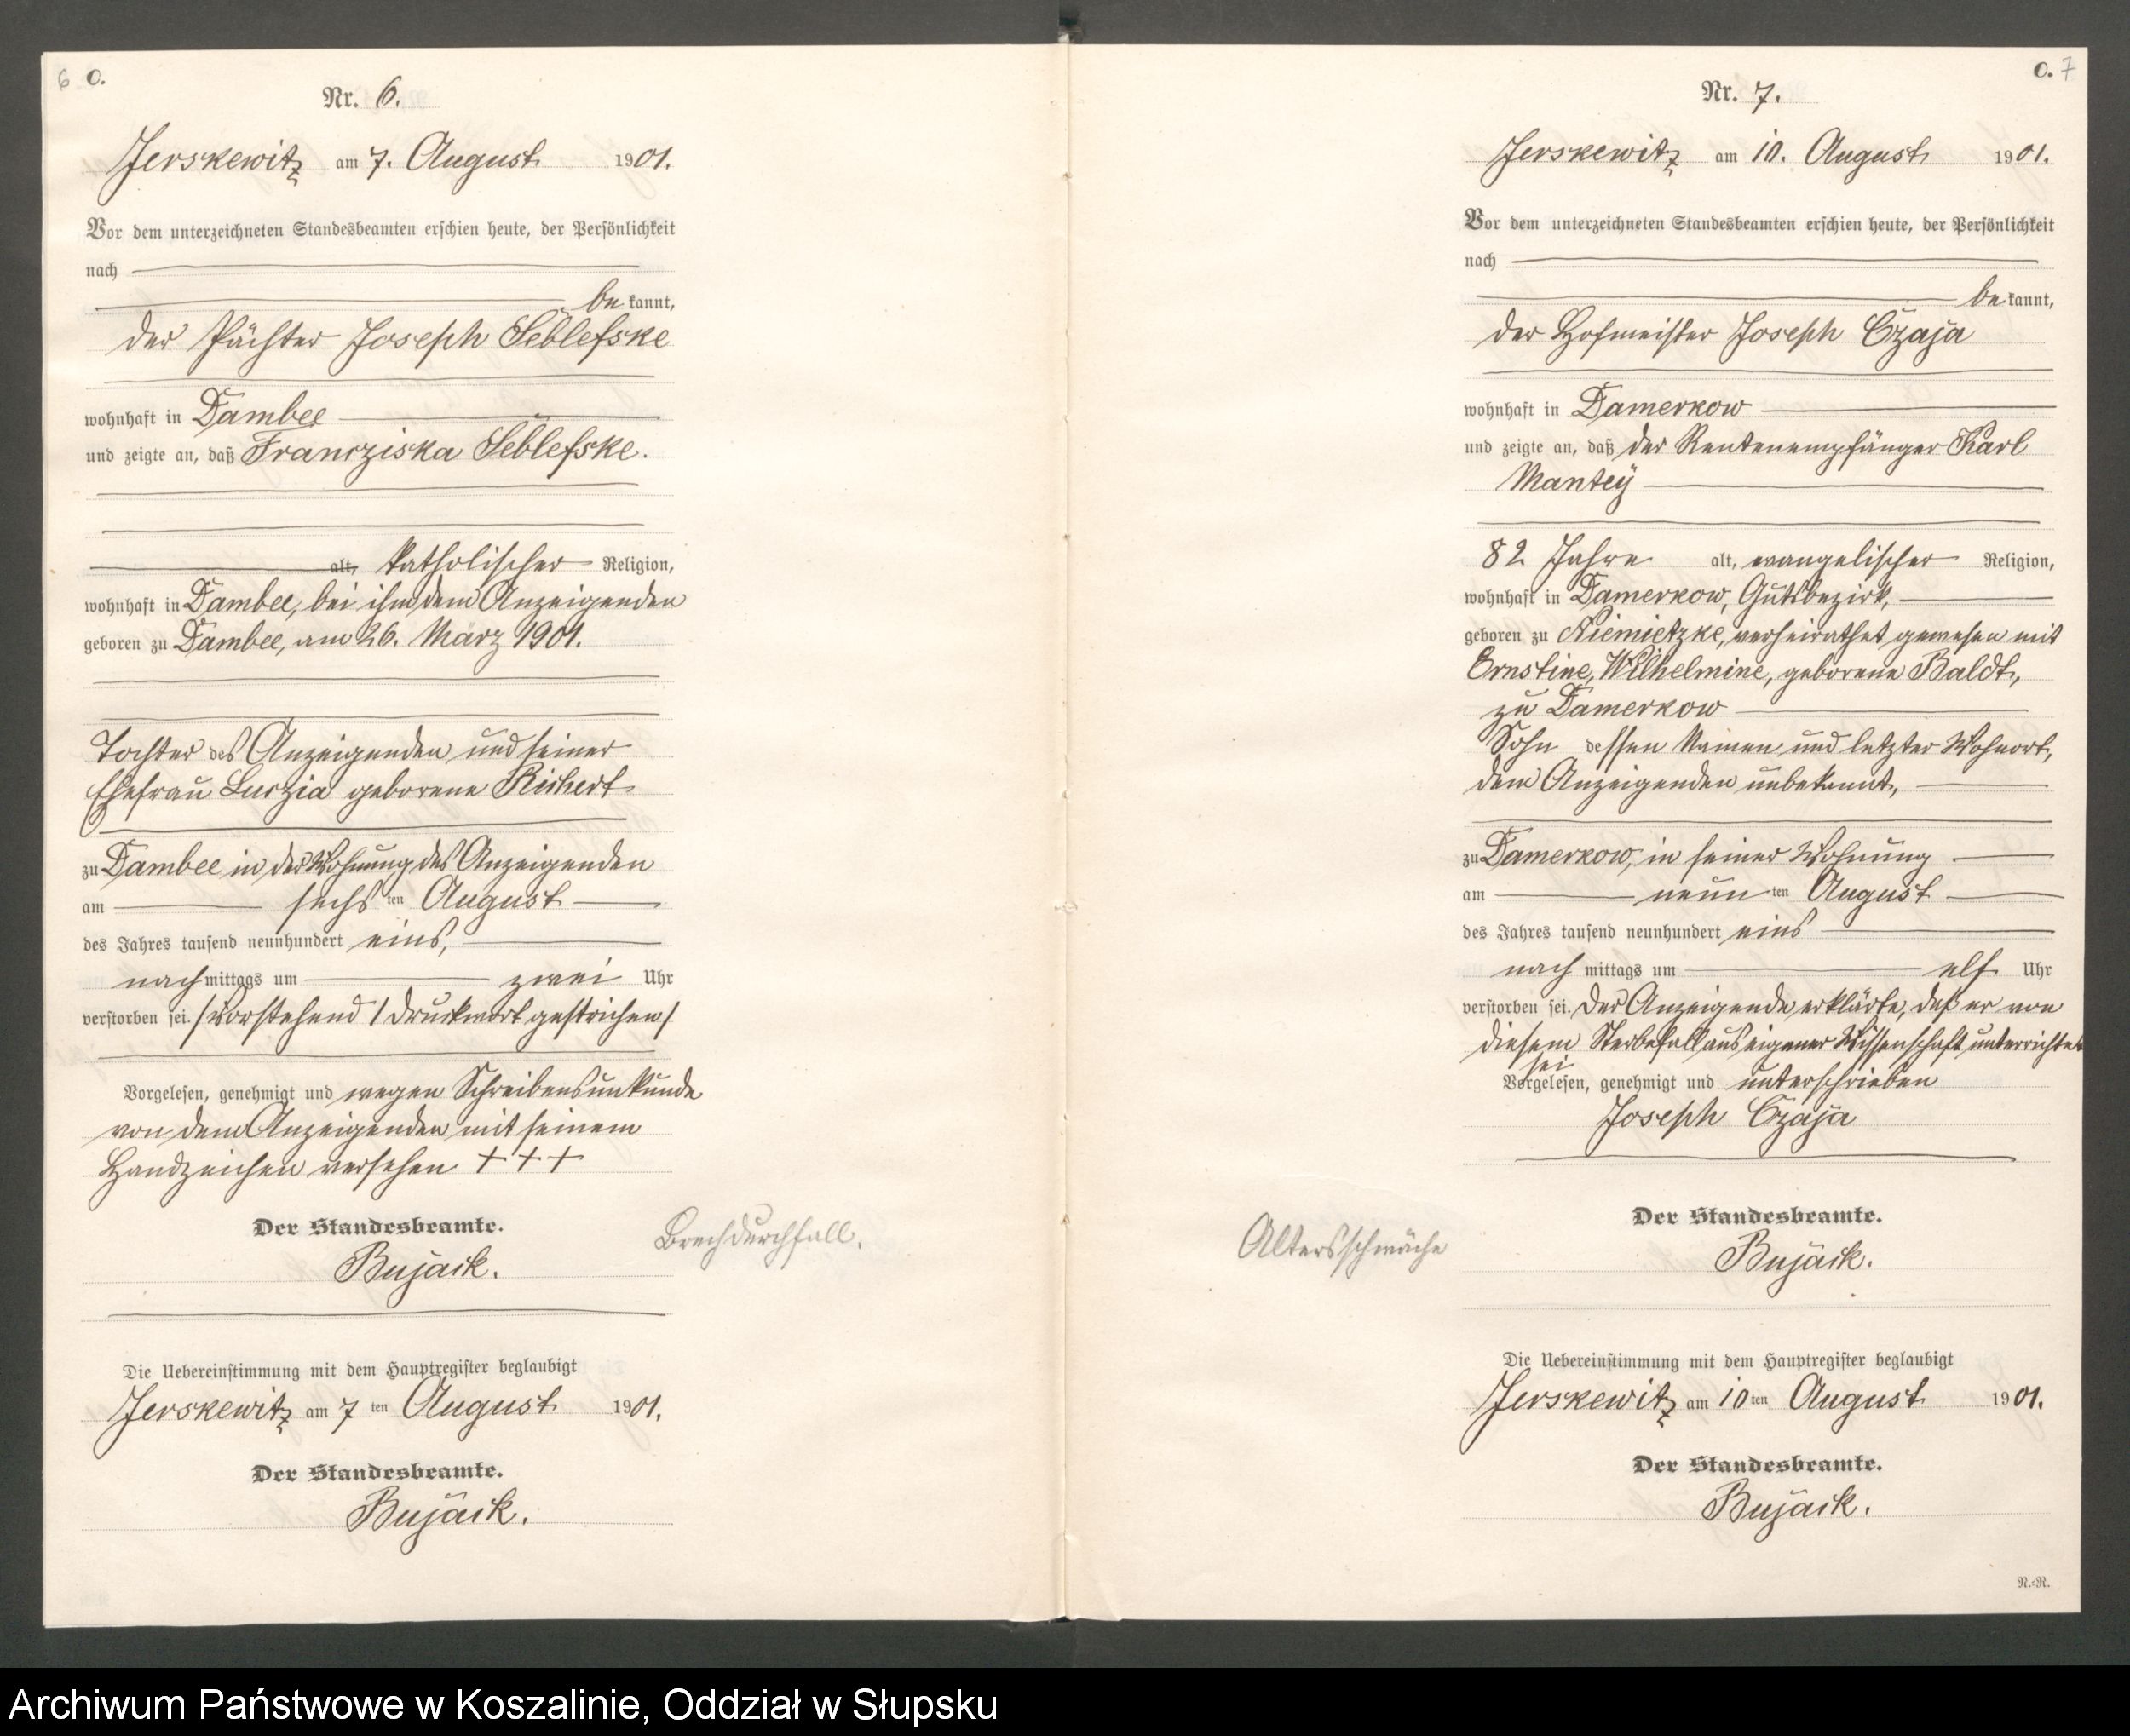 6 C.
Nr. 6.
Jerskewitz am 7. August 1901.
Vor dem unterzeichneten Standesbeamten erschien heute, der Persönlichkeit
nach
be kannt,
der Pächter Joseph Seblefske
wohnhaft in Dambee
und zeigte an, daß Francziska Seblefske.
alt, katholischer Religion,
wohnhaft in Dambee, bei ihm, dem Anzeigenden
geboren zu Dambee, am 26. März 1901.
Tochter des Anzeigenden und seiner
Ehefrau Luczia geborene Richert
zu Dambee in der Wohnung des Anzeigenden
am sechs ten August
des Jahres tausend neunhundert eins,
nach mittags um zwei Uhr
verstorben sei. /Vorstehend 1 Druckwort gestrichen/
Vorgelesen, genehmigt und wegen Schreibensunkunde
von dem Anzeigenden mit seinem
Handzeichen versehen +++
Der Standesbeamte.
Bujack.
Brechdurchfall.
Die Uebereinstimmung mit dem Hauptregister beglaubigt
Jerskewitz am 7 ten August 1901.
Der Standesbeamte.
Bujack.
C. 7
Nr. 7.
Jerskewitz am 10. August 1901.
Vor dem unterzeichneten Standesbeamten erschien heute, der Persönlichkeit
nach
be kannt,
der Hofmeister Joseph Czaja
wohnhaft in Damerkow
und zeigte an, daß der Rentenempfänger Karl
Mantey
82 Jahre alt, evangelischer Religion,
wohnhaft in Damerkow, Gutsbezirk,
geboren zu Niemietzke, verheirathet gewesen mit
Ernstine, Wilhelmine, geborene Baldt,
zu Damerkow
Sohn dessen Namen und letzter Wohnort,
dem Anzeigenden unbekannt,
zu Damerkow, in seiner Wohnung
am neun ten August
des Jahres tausend neunhundert eins
nach mittags um elf Uhr
verstorben sei. Der Anzeigende erklärte, daß er von
diesem Sterbefall aus eigener Wissenschaft unterrichtet
sei
Vorgelesen, genehmigt und unterschrieben
Joseph Czaja
Der Standesbeamte.
Bujack.
Altersschwäche
Die Uebereinstimmung mit dem Hauptregister beglaubigt
Jerskewitz am 10 ten August 1901.
Der Standesbeamte.
Bujack.
N.=N.
Archiwum Państwowe w Koszalinie, Oddział w Słupsku